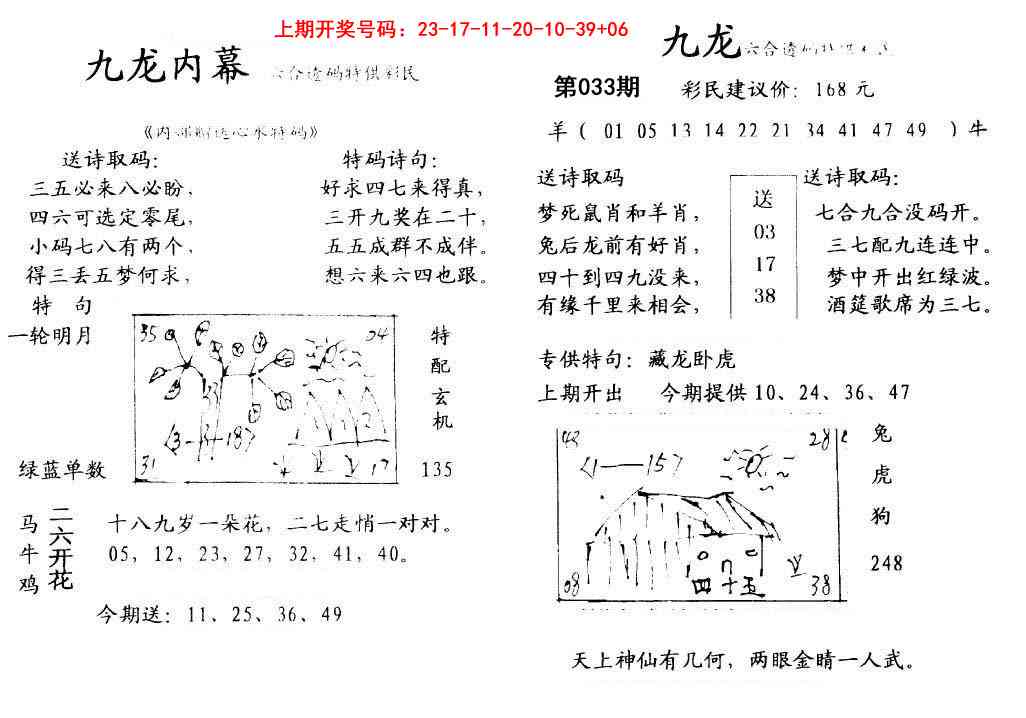 上期开奖号码：23-17-11-20-10-39+06
九龙内幕
六合透码特供彩民
送诗取码：
三五必来八必盼，
四六可选定零尾，
小码七八有两个，
得三丢五梦何求，
特码诗句：
好求四七来得真，
三开九奖在二十，
五五成群不成伴。
想六来六四也跟。
特 句
一轮明月
绿蓝单数
35
04
33
31
17
特配玄机
135
马牛鸡
二六开花
十八九岁一朵花，二七走悄一对对。
05，12，23，27，32，41，40。
今期送：11、25、36、49
九龙
第033期
彩民建议价：168元
羊（ 01 05 13 14 22 21 34 41 47 49 ）牛
送诗取码
梦死鼠肖和羊肖，
兔后龙前有好肖，
四十到四九没来，
有缘千里来相会，
送
03
17
38
送诗取码：
七合九合没码开。
三七配九连连中。
梦中开出红绿波。
酒筵歌席为三七。
专供特句：藏龙卧虎
上期开出 今期提供10、24、36、47
42
28
四十五
08
38
兔
虎
狗
248
天上神仙有几何，两眼金睛一人武。